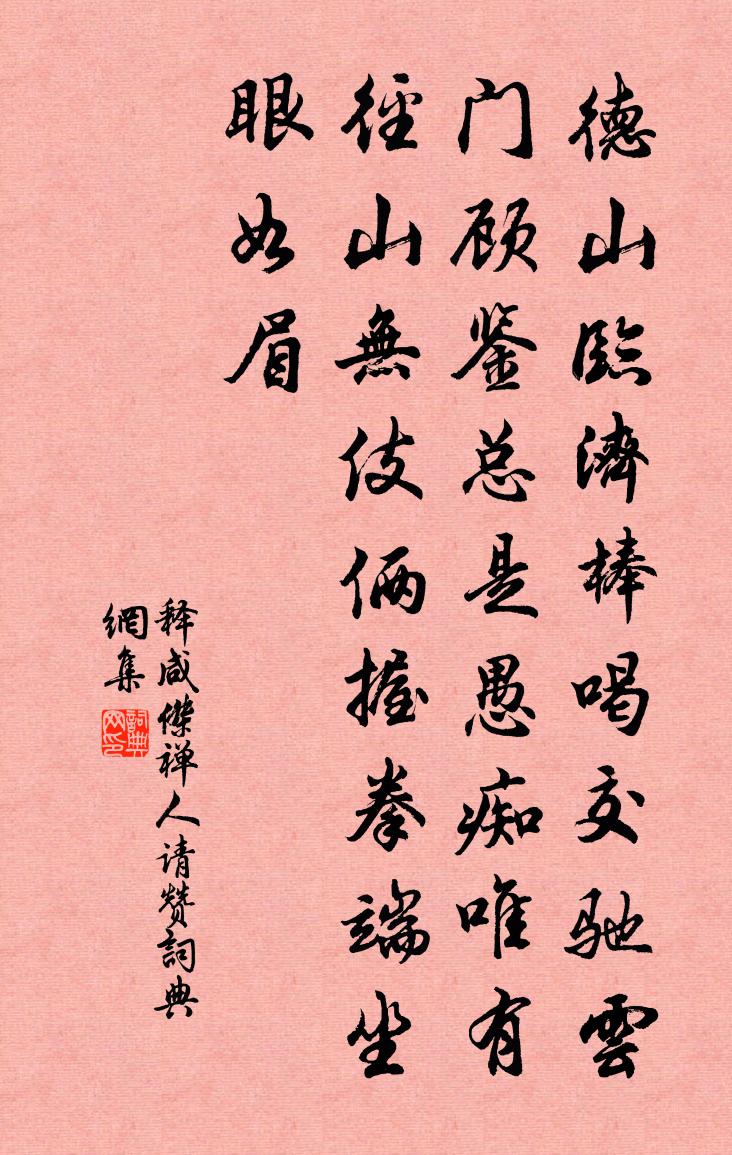 德山臨濟棒喝交馳雲
门顾鉴总是愚痴唯有
徑山無伎倆握拳端坐
眼如眉
释咸傑禅人请赞詞典
網集
詞典
网印